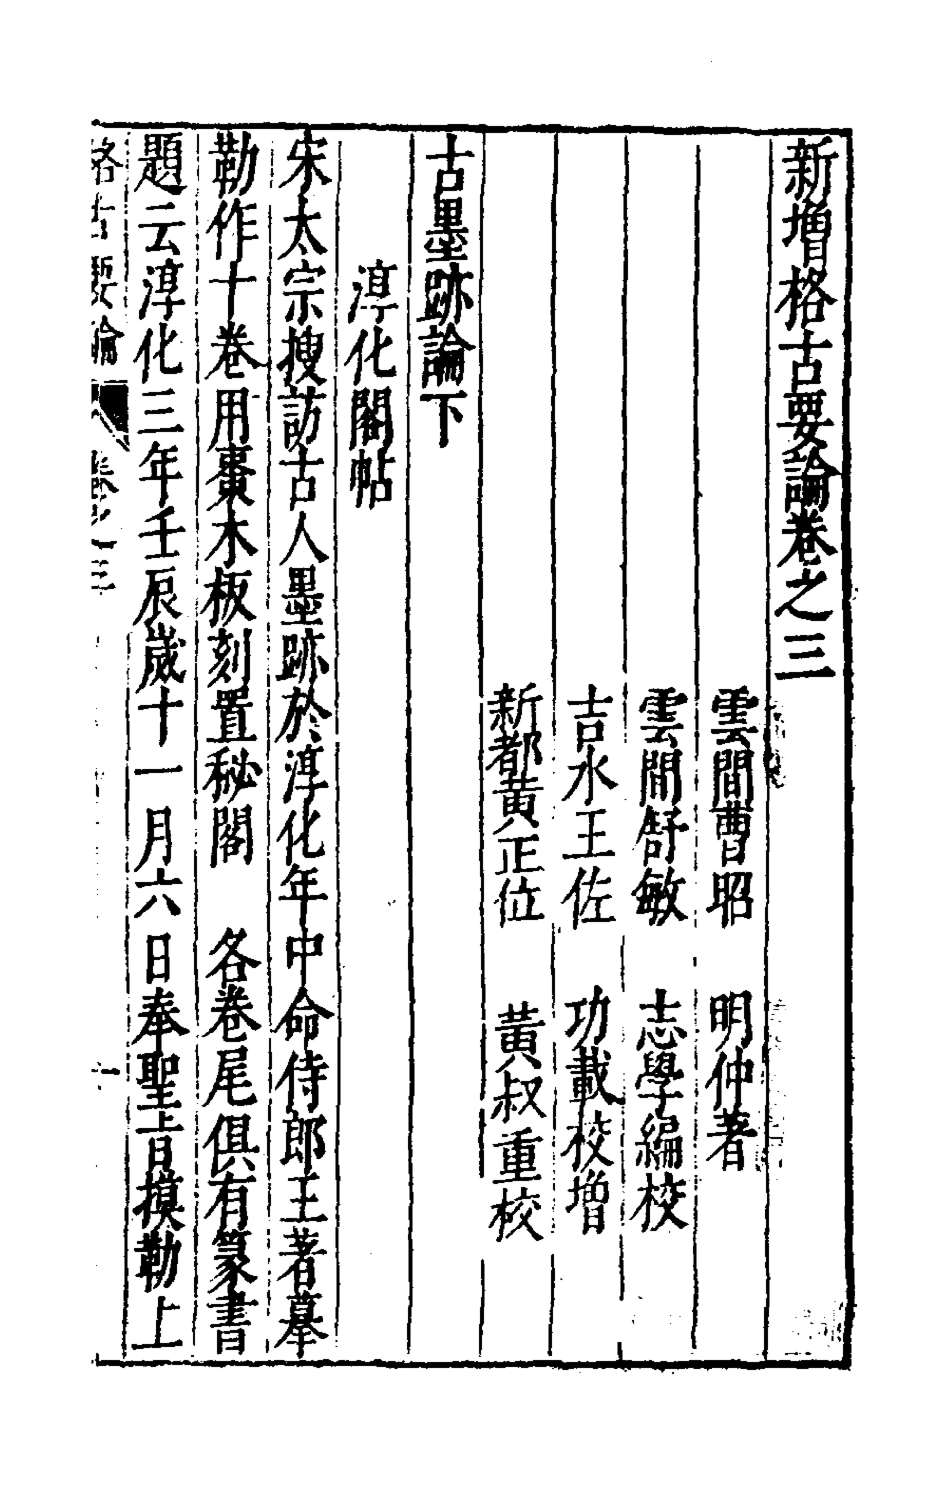 新增格古要論卷之三
雲間曹昭 明仲著
雲間舒敏 志學編校
吉水王佐 功載校增
新都黃正位 黃叔重校
古墨跡論下
淳化閣帖
宋太宗搜訪古人墨跡於淳化年中命侍郎王著摹
勒作十卷用棗木板刻置秘閣 各卷尾俱有篆書
題云淳化三年壬辰歲十一月六日奉聖旨摸勒上
格古要論 卷之三 一